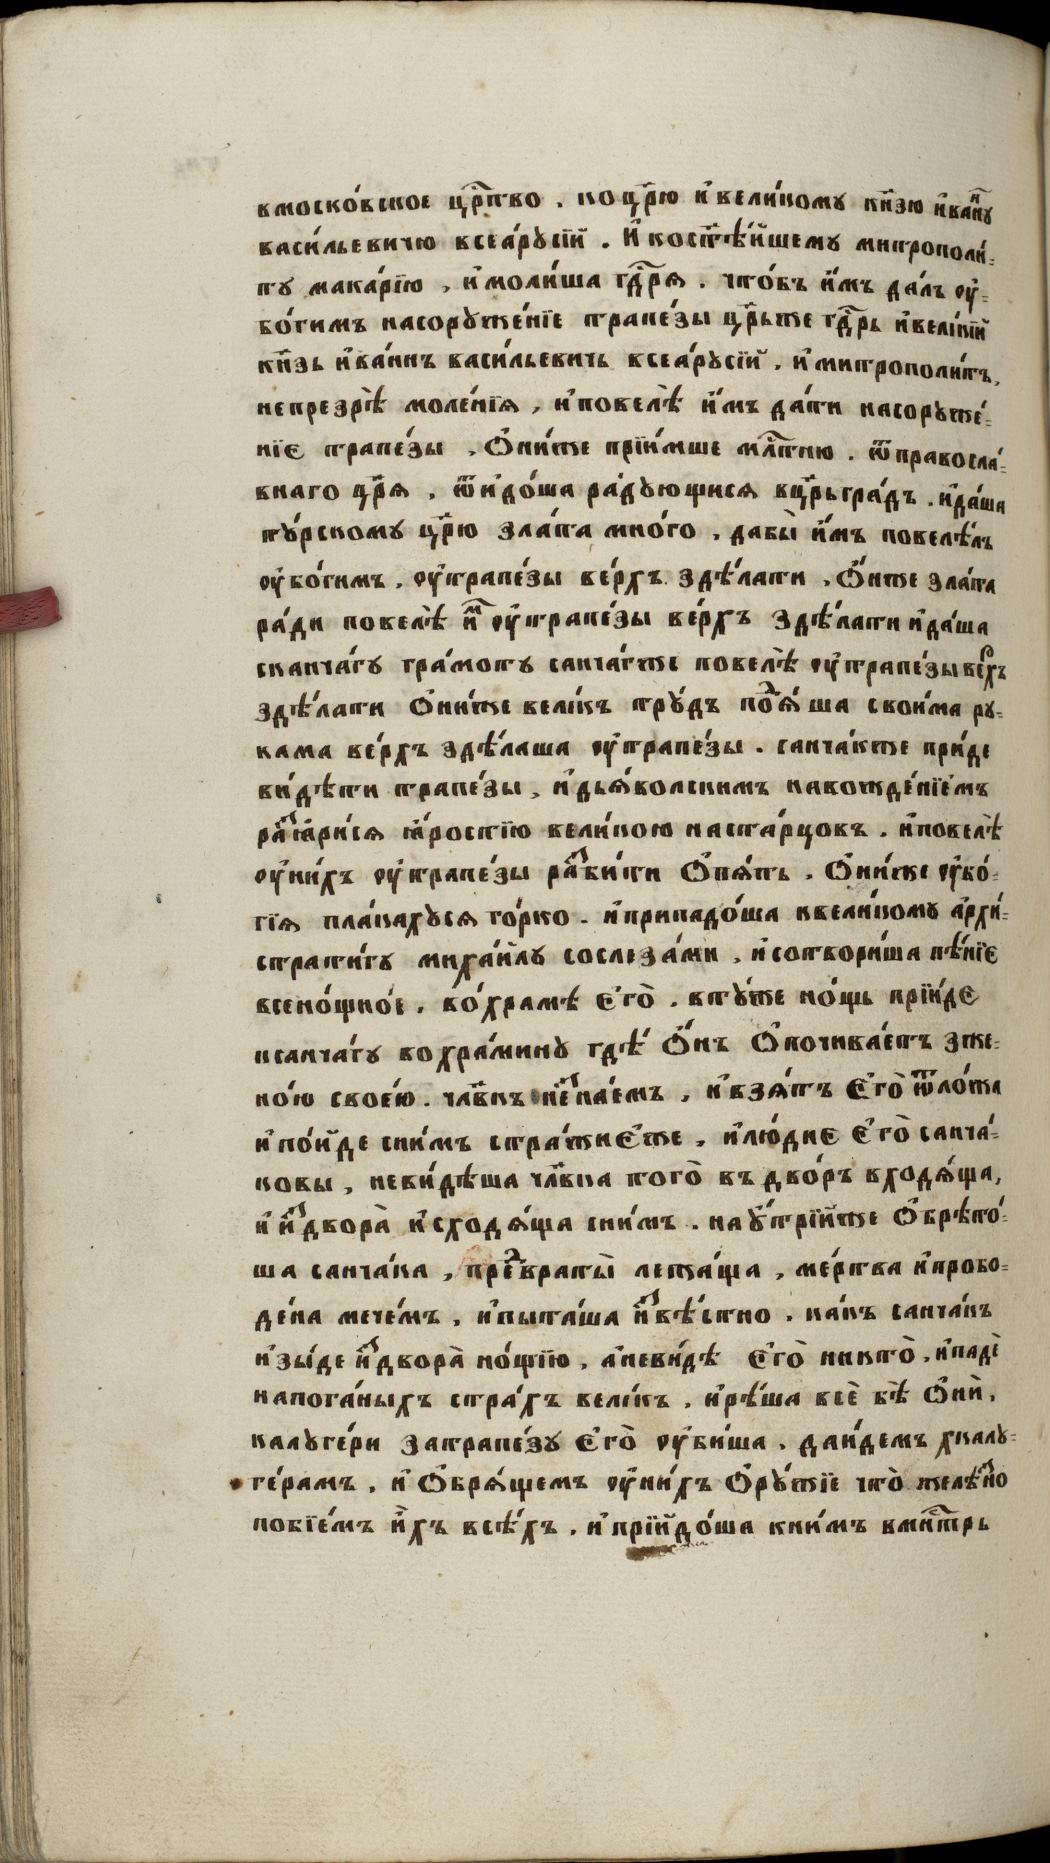 вмоско́вское црⷭ҇тво . коцр҃ю и҆вели́кому кн҃зю и҆ва́нну
васи́льевичю всеа́русїй . И҆ косщ҃е́ннѣ́йшему митрополи́-
ту мака́рїю , и҆моли́ша гдⷭ҇ря . что́бъ и҆́мъ да́лъ оу҆-
бо́гимъ насоруже́нїе трапе́зы цр҃ьже гдⷭ҇рь и҆вели́кїй
кн҃зь и҆ва́ннъ васи́льевичь всеа́русїй . и҆митрополи́тъ,
непрезрѣ̀ моле́нїя , и҆повелѣ̀ и҆́мъ да́ти насоруже́-
нїє трапе́зы . Ѻ҆ни́же прїи́мше млⷭ҇тню . ѿправосла́-
внаго цр҃я , ѿидо́ша ра́дующися вцр҃ьгра́дъ . и҆да́ша
ту́рскому цр҃ю зла́та мно́го , дабы̀ и҆́мъ повелѣ́лъ
оу҆бо́гимъ . оу҆трапе́зы ве́рхъ здѣ́лати . Ѻ҆́нже зла́та
ра́ди повелѣ̀ и҆ⷨ оу҆трапе́зы ве́рхъ здѣ́лати и҆да́ша
ксанча́гу гра́моту санча́гже повелѣ̀ оу҆трапе́зы веⷬ҇хъ
здѣ́лати Ѻ҆ни́же вели́къ тру́дъ поⷣя́ша свои́ма ру-
кама ве́рхъ здѣ́лаша оу҆трапе́зы . санча́кже прі́иде
ви́дѣти трапе́зы , и҆дья́волскимъ навожде́нїе́мъ
раⷥꙗ҆ри́ся ꙗ҆́ростїю вели́кою наста́рцовъ . и҆повелѣ̀
оу҆ни́хъ оу҆трапе́зы раⷥби́ти Ѻ҆пя́ть . Ѻ҆ни́же оу҆бо́-
гїя пла́кахуся го́рко . и҆припадо́ша квели́кому а҆рхи́-
страти́гу миха́йлу сослеза́ми , и҆сотвори́ша пѣ́нїє
всено́щно́е . во́храмѣ є҆гѡ̀ . вту́же но́щь прїи́дє
ксанча́гу вохра́мину гдѣ́ Ѻ҆́нъ Ѻ҆почива́етъ зже-
но́ю свое́ю . чл҃вкъ неⷥна́емъ , и҆взя́тъ Є҆гѡ̀ ѿло́жа
и҆по́йде сни́мъ стра́жиЄ҆́же , и҆лю́диє Є҆гѡ̀ санча́-
ковы , неви́дѣша чл҃вка тогѡ̀ въ дво́ръ входя́ща,
и҆ и҆ⷥдвора̀ и҆сходя́ща сни́мъ . нау҆́трїйже Ѻ҆брѣто́-
ша санча́ка , преⷣвраты̀ лежа́ща , ме́ртва и҆пробо-
де́на мече́мъ , и҆пыта́ша и҆ⷥвѣ́стно . ка́къ санча́къ
и҆зы́де и҆ⷥдвора̀ но́щїю , а҆неви́дѣ Є҆гѡ̀ никто̀ , и҆падѐ
напога́ныхъ стра́хъ вели́къ . и҆рѣ́ша всѐ бѣ̀ Ѻ҆нѝ ,
калуге́ри затрапе́зу Є҆гѡ̀ оу҆би́ша . даи́демъ хкалу-
ге́рамъ , и҆ Ѻ҆бря́щемъ оу҆ни́хъ Ѻ҆ру́жїе что̀ желѣ́ⷥно
побїе́мъ и҆́хъ всѣ́хъ . и҆ прїидо́ша кни́мъ вмнⷭ҇трь